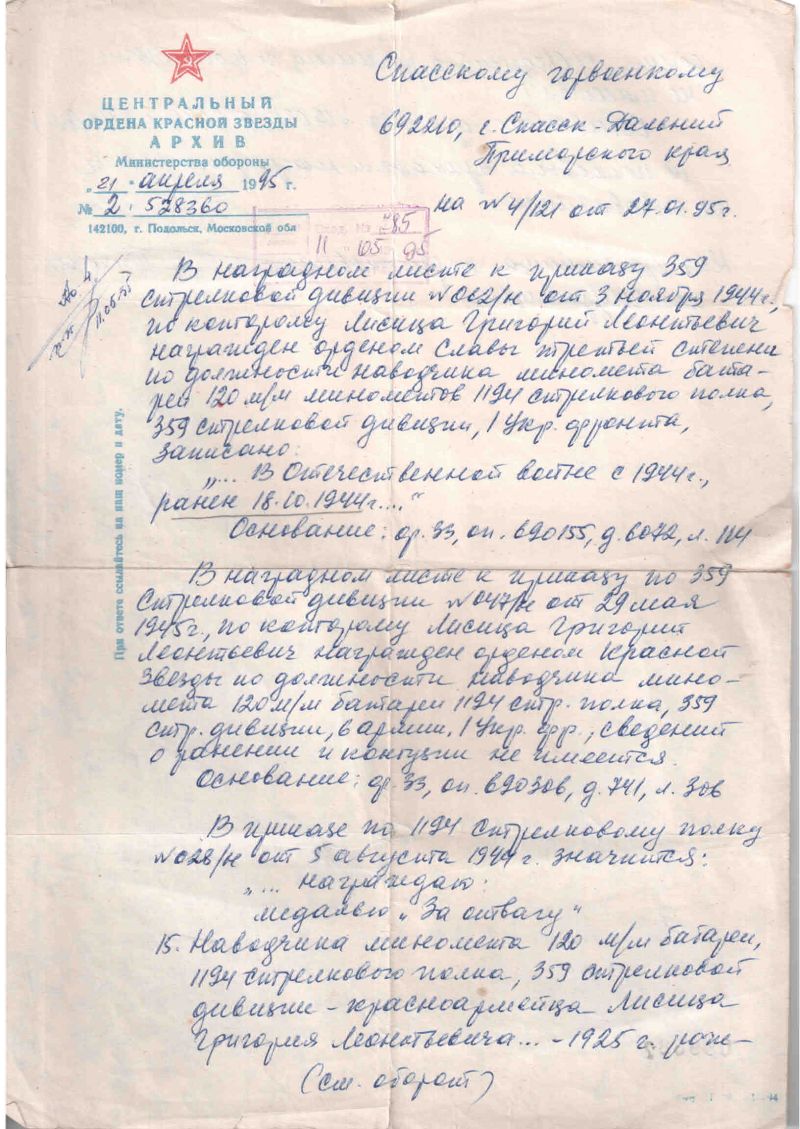 ЦЕНТРАЛЬНЫЙ
ОРДЕНА КРАСНОЙ ЗВЕЗДЫ
АРХИВ
Министерства обороны
„21" апреля 1995 г.
№ 2. 528360
142100, г. Подольск, Московской обл
Спасскому горвоенкому
692210, г. Спасск-Дальний
Приморского края
на №4/121 от 27.01.95г.
11 05 95
11.05.95
При ответе ссылайтесь на наш номер и дату.
В наградном листе к приказу 359
стрелковой дивизии №062/н от 3 ноября 1944г.,
по которому Лисица Григорий Леонтьевич
награжден орденом Славы третьей степени
по должности наводчика миномета бата-
реи 120 м/м минометов 1194 стрелкового полка,
359 стрелковой дивизии, 1 Укр. фронта,
записано:
„... В Отечественной войне с 1944г.,
ранен 18.10.1944г...."
Основание: ф.33, оп. 690155, д.6072, л. 114
В наградном листе к приказу по 359
стрелковой дивизии №047/н от 29 мая
1945г., по которому Лисица Григорий
Леонтьевич награжден орденом Красной
Звезды по должности наводчика мино-
мета 120м/м батареи 1194 стр. полка, 359
стр. дивизии, 6 армии, 1 Укр. фр., сведений
о ранении и контузии не имеется.
Основание: ф.33, оп. 690306, д.741, л. 306
В приказе по 1194 стрелковому полку
№028/н от 5 августа 1944г. значится:
„... награждаю:
медалью „За отвагу"
15. Наводчика миномета 120 м/м батареи,
1194 стрелкового полка, 359 стрелковой
дивизии - красноармейца Лисица
Григория Леонтьевича... - 1925 г. рож-
(см. оборот)